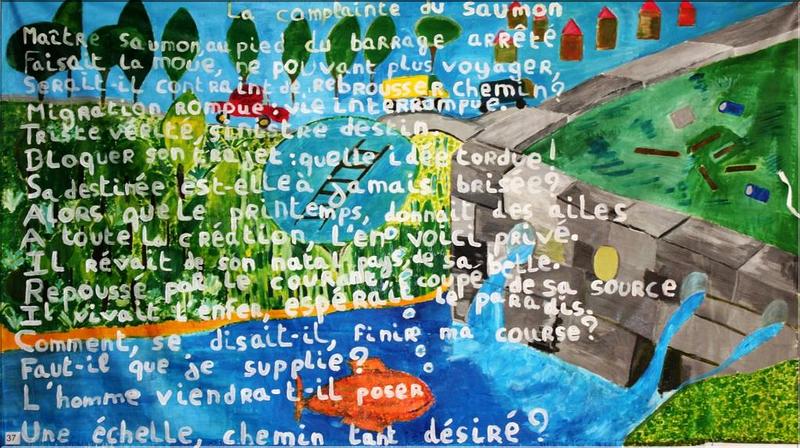 La complainte du saumon
Maître saumon, au pied du barrage arrêté
Faisait la moue, ne pouvant plus voyager,
Serait-il contraint de rebrousser chemin?
Migration rompue, vie interrompue.
Triste vérité, sinistre destin.
Bloquer son trajet: quelle idée tordue!
Sa destinée est-elle à jamais brisée?
Alors que le printemps, donnait des ailes
A toute la création, l'en voici privé.
Il rêvait de son natal pays, de sa belle.
Repoussé par le courant, coupé de sa source
Il vivait l'enfer, espérait le paradis.
Comment, se disait-il, finir ma course?
Faut-il que je supplie?
L'homme viendra-t-il poser
Une échelle, chemin tant désiré?
37